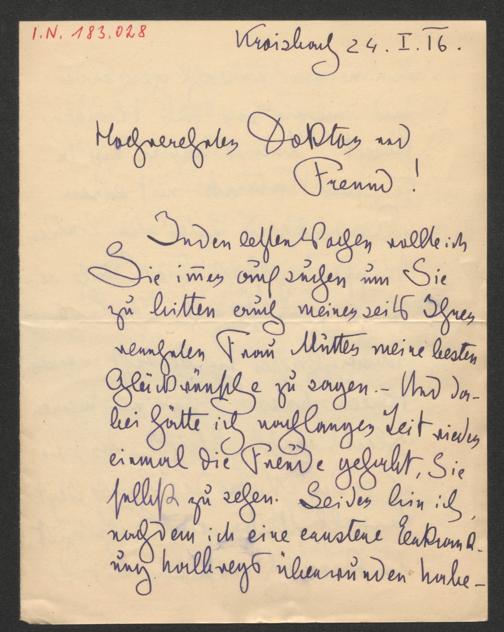 I.N. 183.028
Kroisbach 24. I. 16.
Hochverehrter Doktor und
Freund!
In den letzten Wochen wollte ich
Sie immer aufsuchen um Sie
zu bitten auch meinerseits Ihrer
verehrten Frau Mutter meine besten
Glückwünsche zu sagen. – Und da-
bei hätte ich nach langer Zeit wieder
einmal die Freude gehabt, Sie
selbst zu sehen. Leider bin ich,
nachdem ich eine ernstere Erkrank-
ung halbwegs überwunden habe –